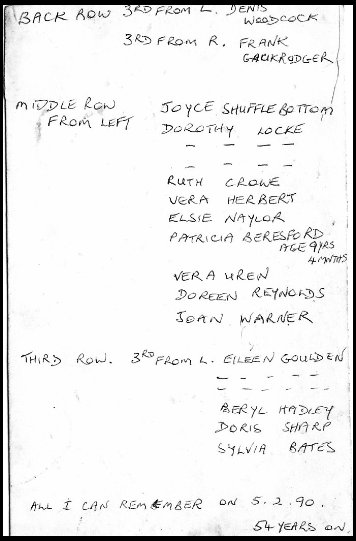 BACK ROW 3RD FROM L. DENIS
WOODCOCK
3RD FROM R. FRANK
GACKRODGER
MIDDLE ROW JOYCE SHUFFLEBOTTOM
FROM LEFT DOROTHY LOCKE
– – – –
– – – –
RUTH CROWE
VERA HERBERT
ELSIE NAYLOR
PATRICIA BERESFORD
AGE 9YRS
4 MNTHS
VERA UREN
DOREEN REYNOLDS
JOAN WARNER
THIRD ROW. 3RD FROM L. EILEEN GOULDEN
– – – –
– – – –
BERYL HADLEY
DORIS SHARP
SYLVIA BATES
ALL I CAN REMEMBER ON 5.2.90.
54 YEARS ON.